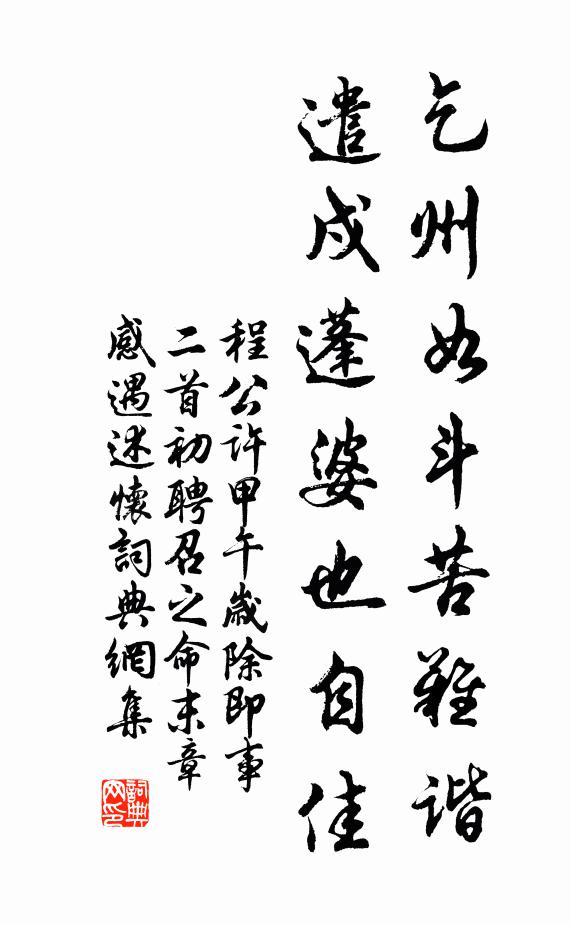 乞州如斗苦難谐
遣戍蓬婆也自佳
程公许甲午歲除即事
二首初聘召之命末章
感遇述懷詞典網集
詞典
网印